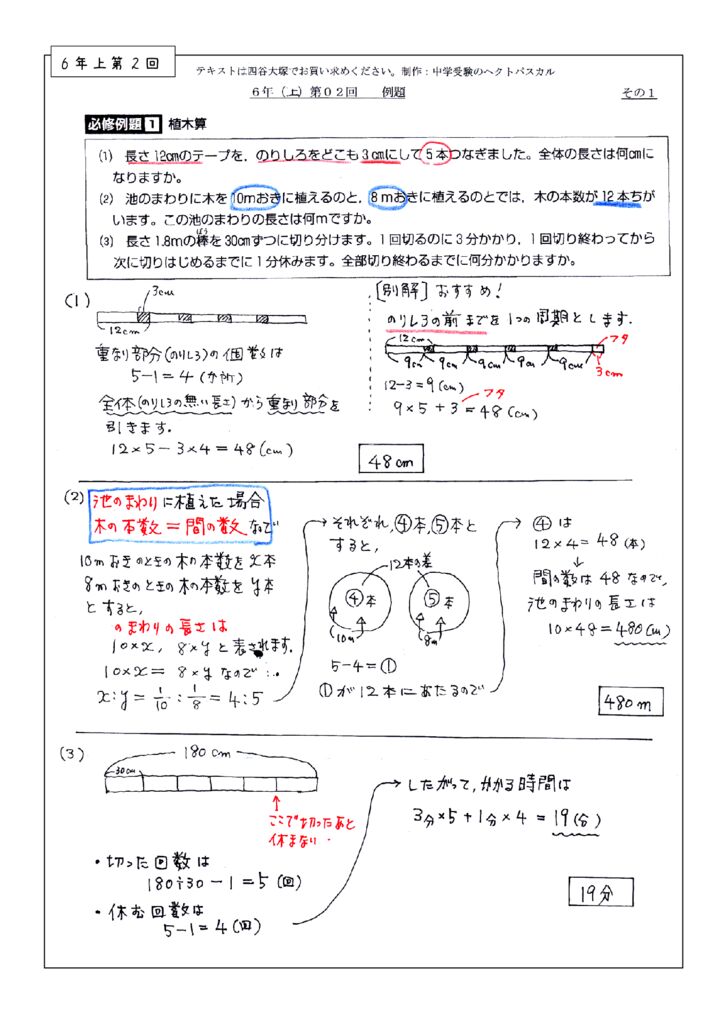 6年上第2回
テキストは四谷大塚でお買い求めください。制作:中学受験のヘクトパスカル
6年(上)第02回 例題
その1
必修例題1 植木算
(1) 長さ12cmのテープを,のりしろをどこも3cmにして5本つなぎました。全体の長さは何cmに
なりますか。
(2) 池のまわりに木を10mおきに植えるのと,8mおきに植えるのとでは,木の本数が12本ちが
います。この池のまわりの長さは何mですか。
(3) 長さ1.8mの棒を30cmずつに切り分けます。1回切るのに3分かかり,1回切り終わってから
ぼう
次に切りはじめるまでに1分休みます。全部切り終わるまでに何分かかりますか。
(1)
3cm
12cm
重なり部分(のりしろ)の個数は
5-1=4(か所)
全体(のりしろの無い長さ)から重なり部分を
引きます。
12×5-3×4=48(cm)
[別解] おすすめ!
のりしろの前までを1つの周期とします.
12cm
フタ
9cm 9cm 9cm 9cm 9cm
3cm
12-3=9(cm)
フタ
9×5+3=48(cm)
48cm
(2)
池のまわりに植えた場合
木の本数=間の数なので
10mおきのときの木の本数をx本
8mおきのときの木の本数をy本
とすると,
のまわりの長さは
10×x, 8×yと表されます.
10×x=8×yなので
x:y=1/10:1/8=4:5
それぞれ,④本,⑤本と
すると,
12本の差
④本 ⑤本
10m 8m
5-4=①
①が12本にあたるので
④は
12×4=48(本)
↓
間の数は48なので,
池のまわりの長さは
10×48=480(cm)
480m
(3)
180cm
30cm
ここで切ったあと
休まない.
・切った回数は
180÷30-1=5(回)
・休む回数は
5-1=4(回)
したがって,かかる時間は
3分×5+1分×4=19(分)
19分